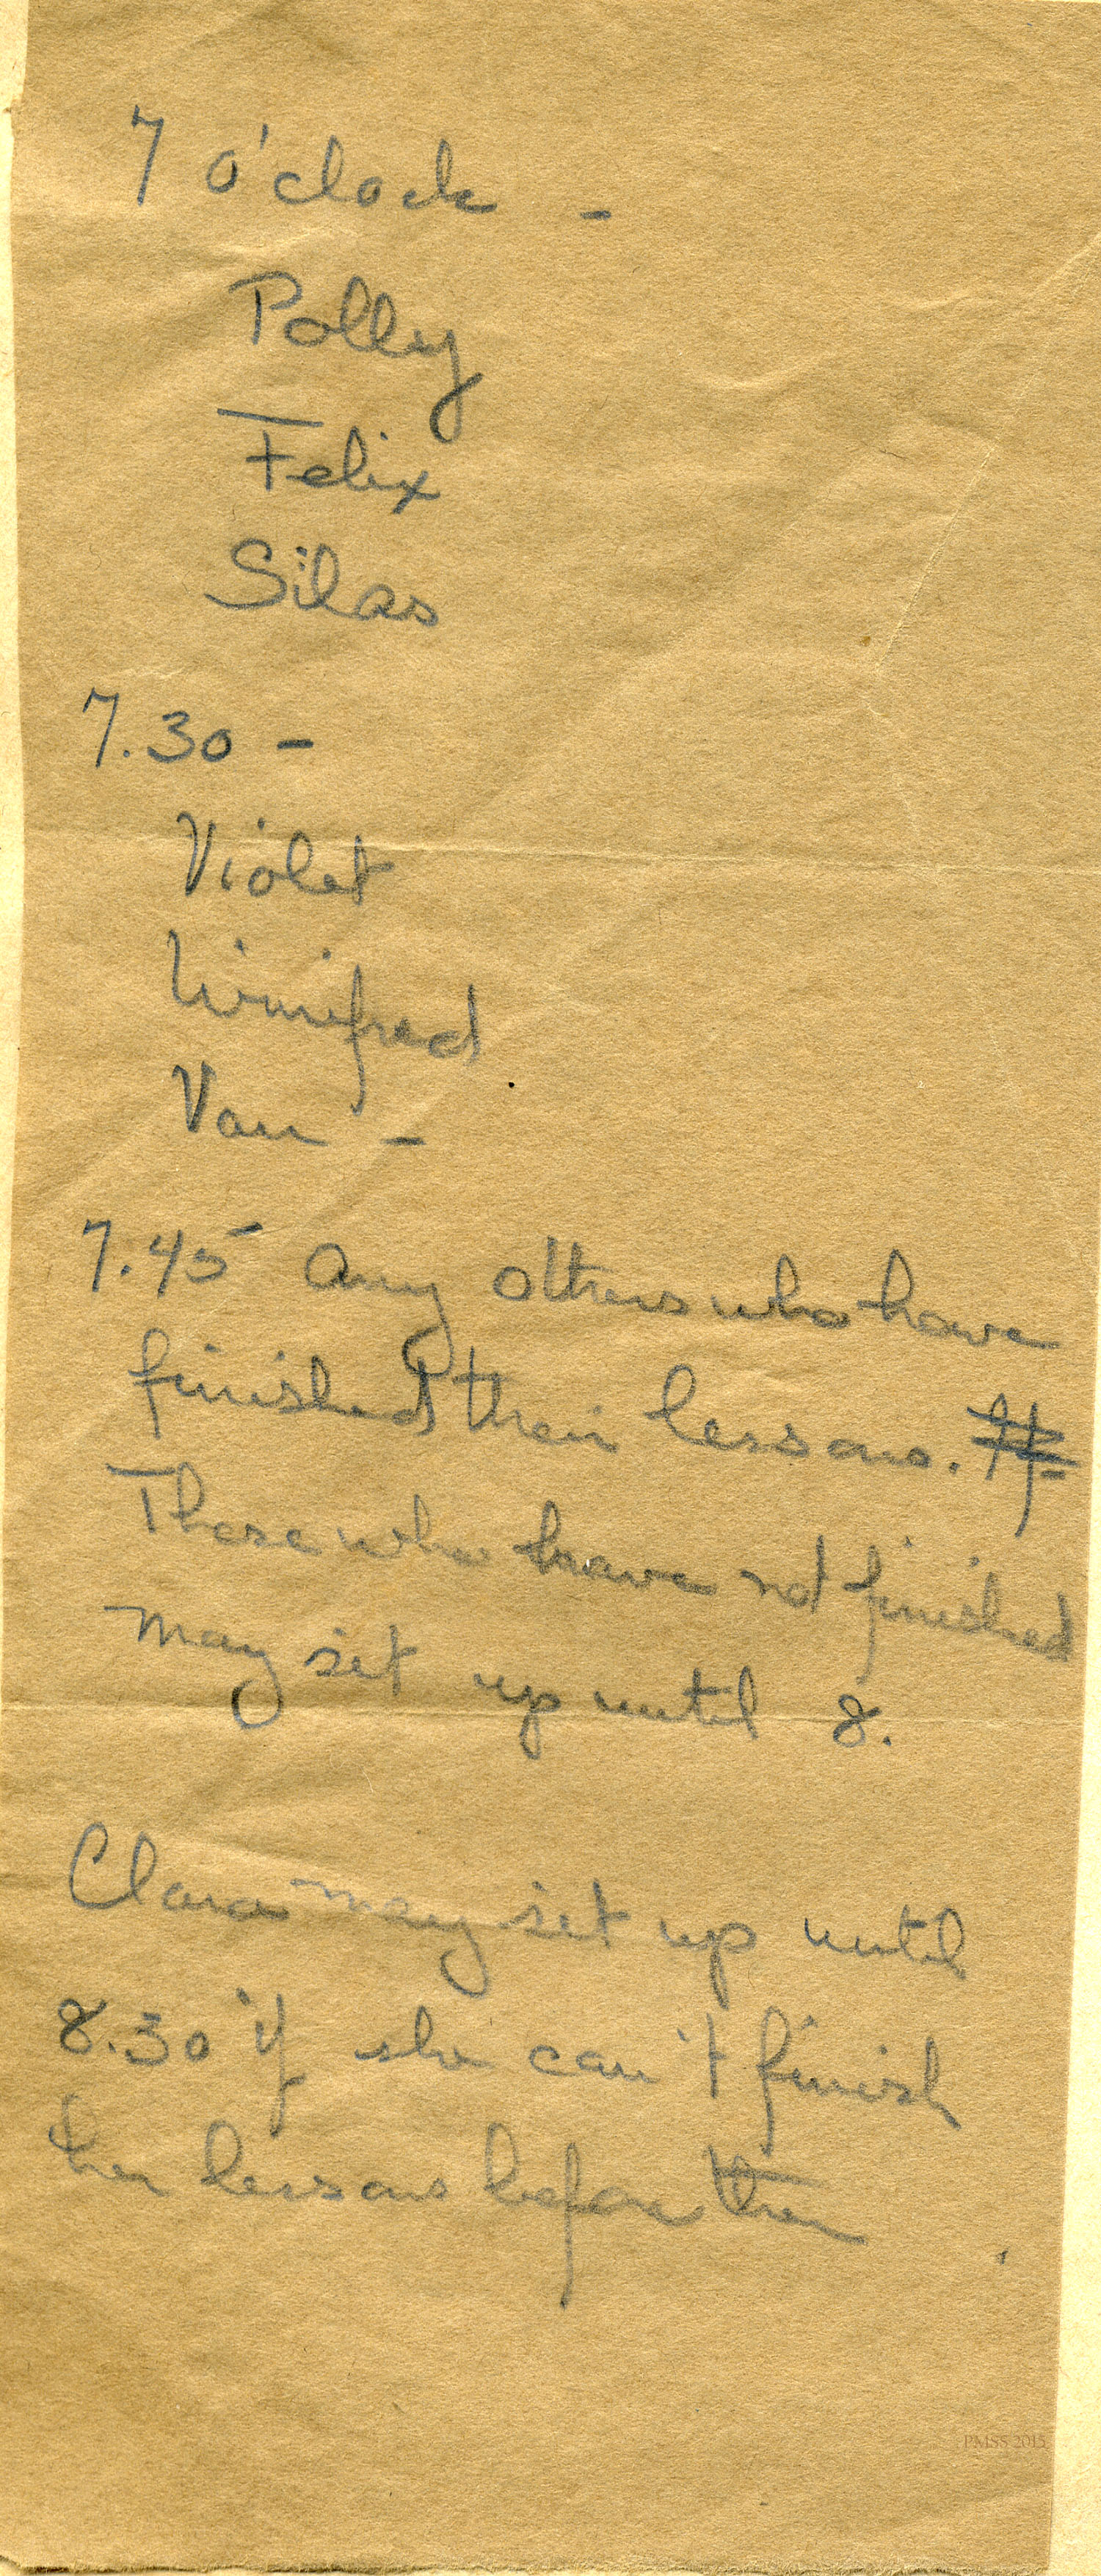 7 o'clock -
Polly
Felix
Silas
7.30 -
Violet
Winifred
Van -
7.45 Any others who have
finished their lessons.
Those who have not finished
may set up until 8.
Clara may set up until
8.30 if she can't finish
her lessons before then
PMSS 2015